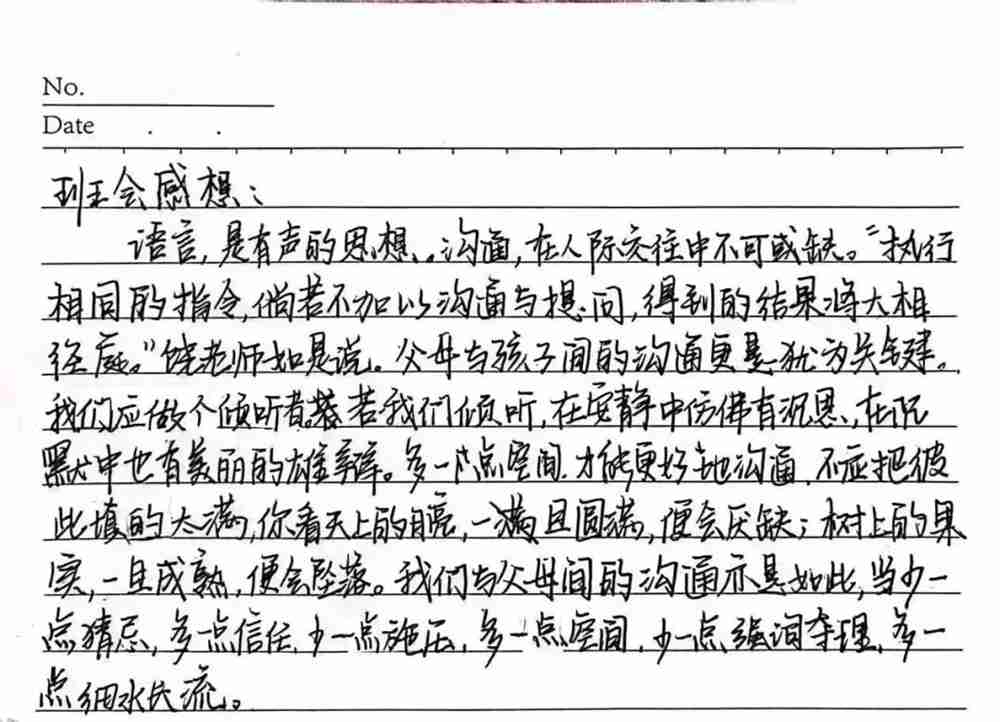 No.
Date . .
班会感想：
语言，是有声的思想。沟通，在人际交往中不可或缺。"执行
相同的指令，倘若不加以沟通与提问，得到的结果将大相
径庭。"饶老师如是说。父母与孩子间的沟通更是犹为关键。
我们应做个倾听者。若我们倾听，在安静中仿佛有沉思，在沉
默中也有美丽的雄辩。多一点空间，才能更好地沟通，不应把彼
此填的太满，你看天上的月亮，一满且圆满，便会厌缺；树上的果
实，一旦成熟，便会坠落。我们与父母间的沟通亦是如此，当少一
点猜忌，多一点信任，少一点施压，多一点空间，少一点强词夺理，多一
点细水长流。